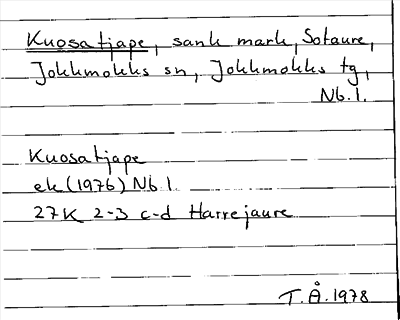 Kuosatjape, sank mark, Sotaure,
Jokkmokks sn, Jokkmokks tg,
Nb.l.
Kuosatjape
ek (1976) Nb l
27K 2-3 c-d Harrejaure
T.Å.1978